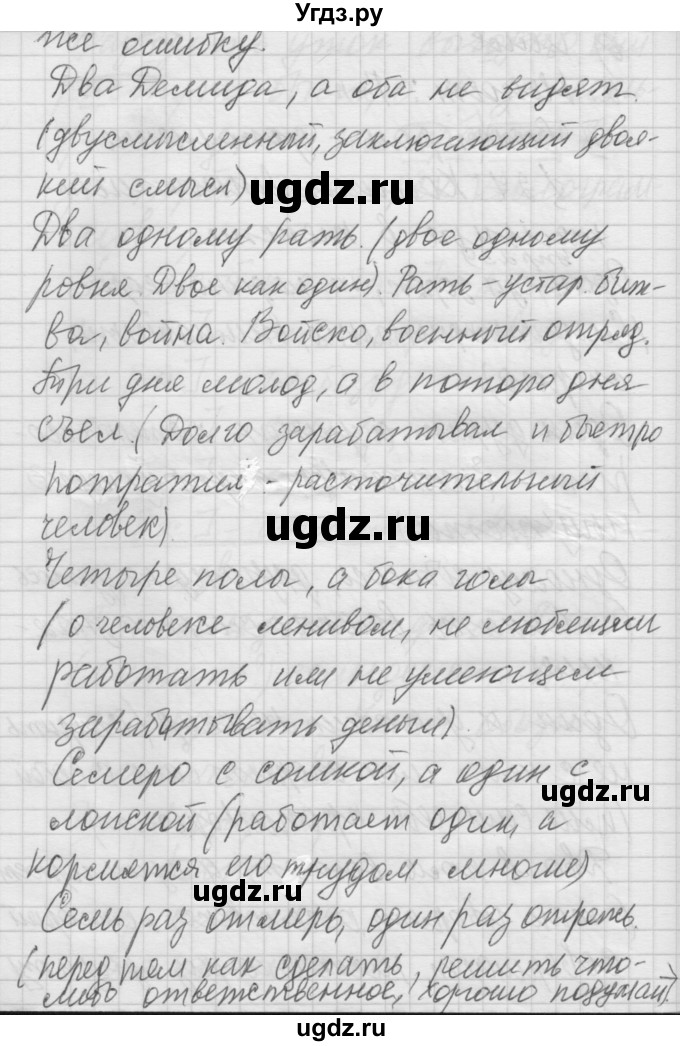 Угдз.ру
же ошибку.
Два Демида, а оба не видят.
(двусмысленный, заключающий двоя-
кий смысл)
ugdz.ru
Два одному рать. (двое одному
ровня. Двое как один). Рать - устар. бит-
ва, война. Войско, военный отряд.
Три дня молол, а в полтора дня
съел. (Долго зарабатывал и быстро
потратил - расточительный
ugdz.ru
человек).
Четыре полы, а бока голы
(о человеке ленивом, не любящим
работать или не умеющем
зарабатывать деньги)
Семеро с сошкой, а один с
ложкой (работает один, а
ugdz.ru
кормятся его трудом многие)
ugdz.ru
Семь раз отмерь, один раз отрежь.
(перед тем как сделать, решить что-
либо ответственное, хорошо подумай).
ugdz.ru